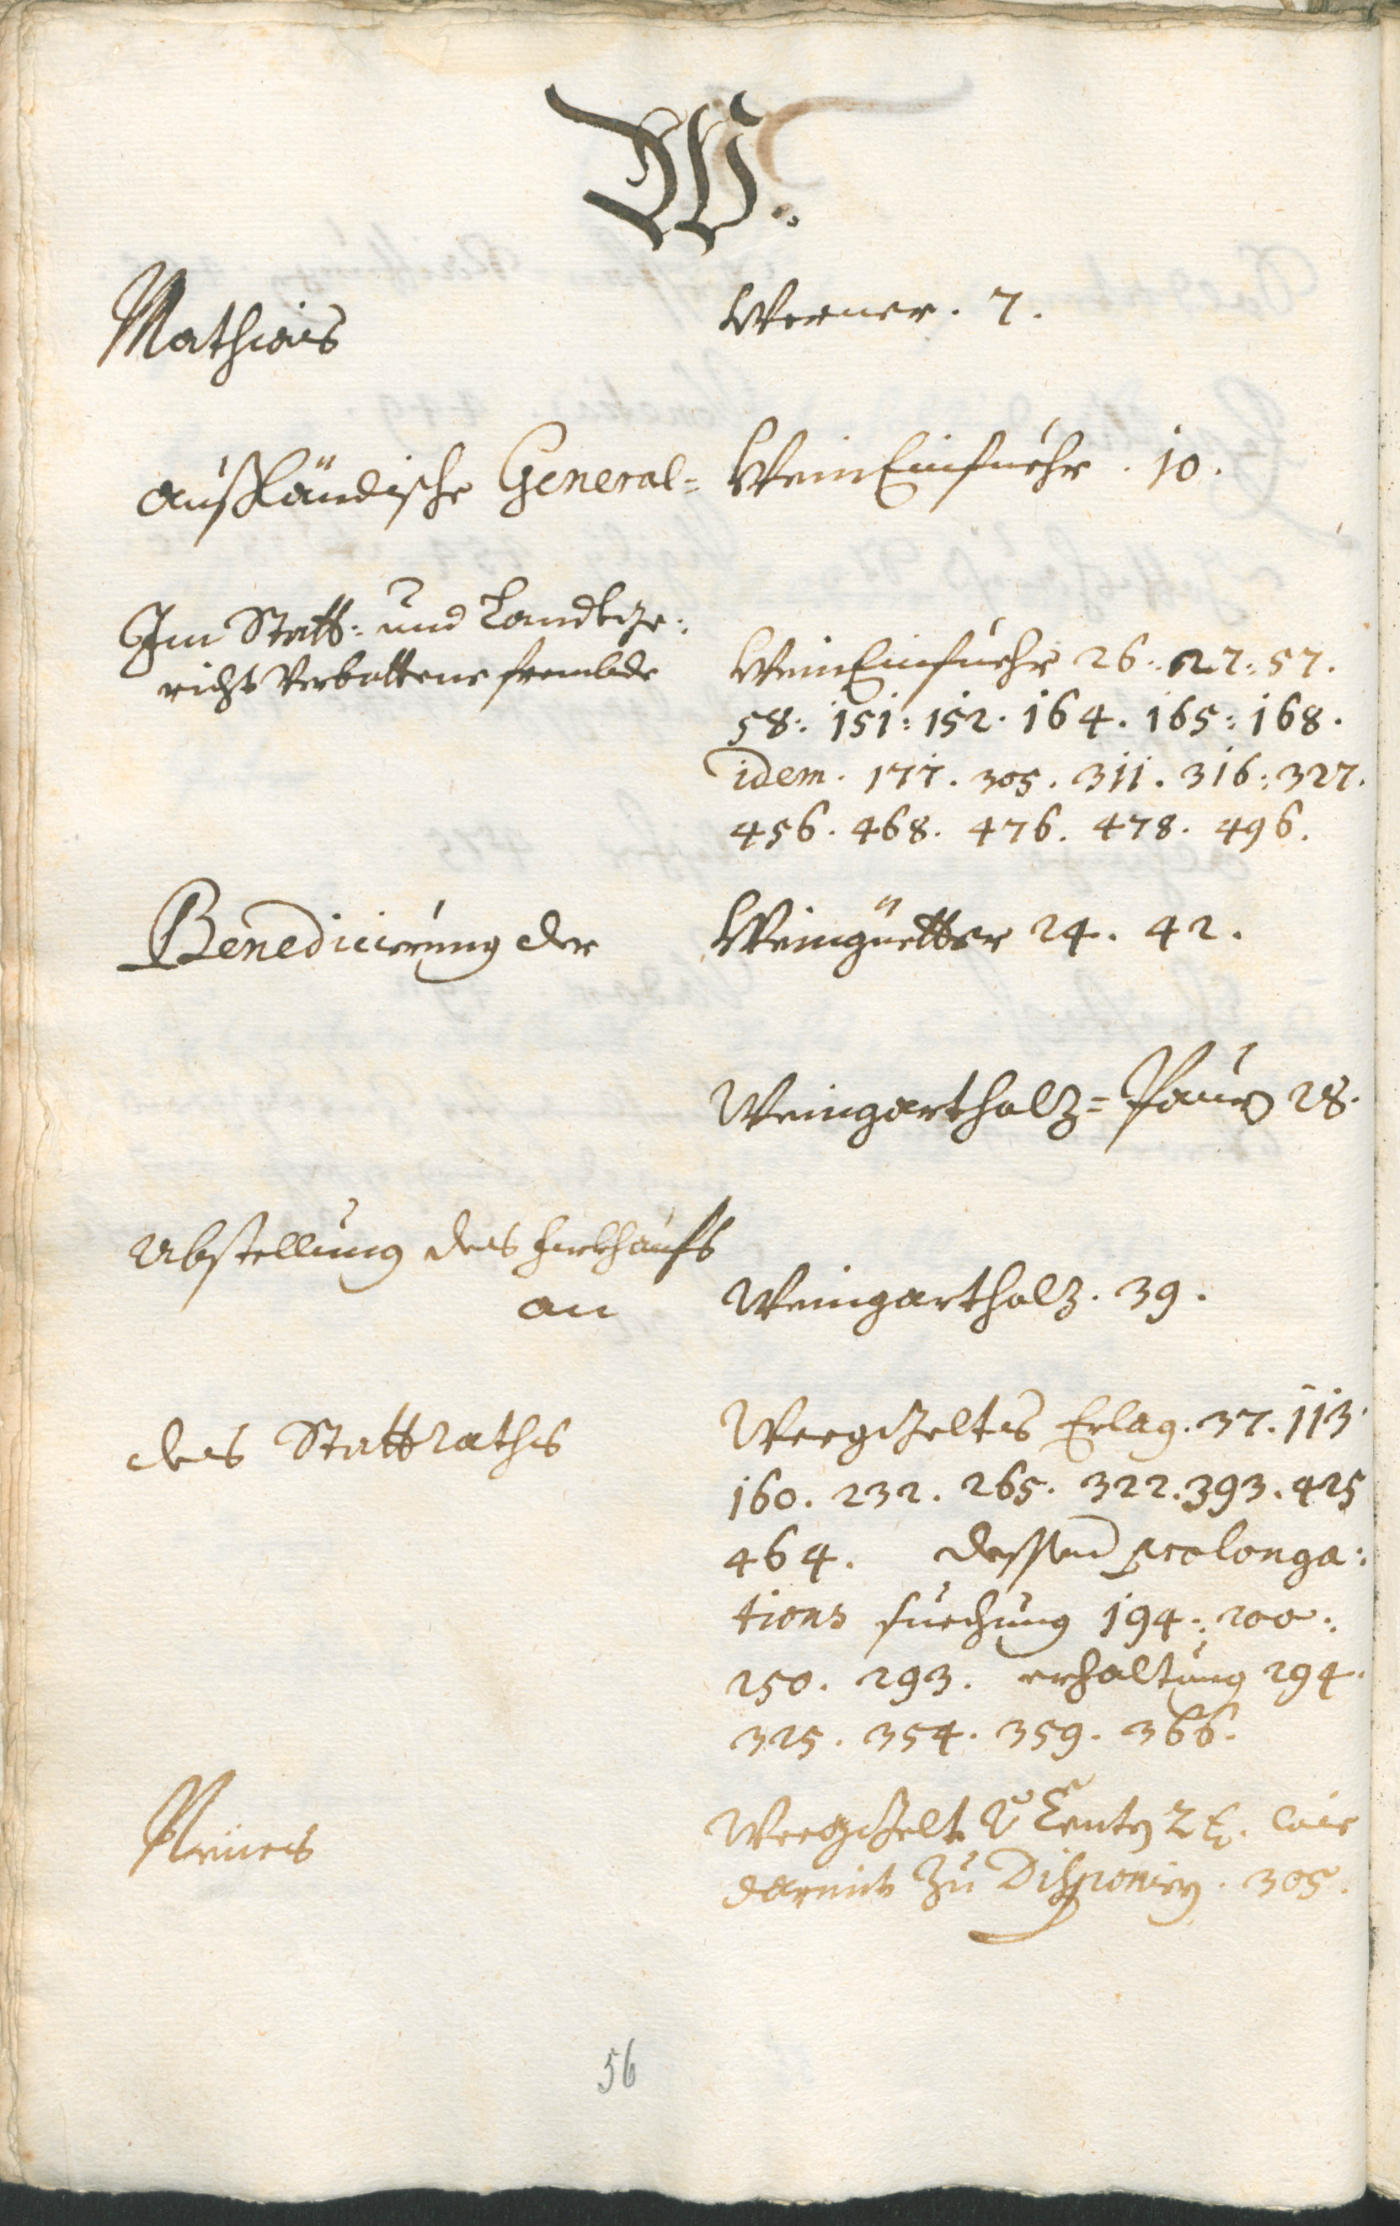 W.
Mathias Werner. 7.
außländische General= WeinEinfuehr. 10.
Im Statt: und Landtge:
richt Verbottene frembde WeinEinfuehr 26. 27: 57.
58: 151: 152. 164. 165: 168.
idem. 177. 305. 311. 316: 327.
456. 468. 476. 478. 496.
Benedicierung der Weingüetter 24. 42.
Weingartholz= 28.
Abstellung des fürkhaufs
an Weingartholz. 39.
des Stattraths Weegzeltes Erlag. 37. 113.
160. 232. 265. 322. 393. 425
464. dessen prolonga:
tions suechung 194: 200:
250. 293. erhaltung 294.
325. 354. 359. 366.
Neues
darmit zu Disponiern. 305.
56